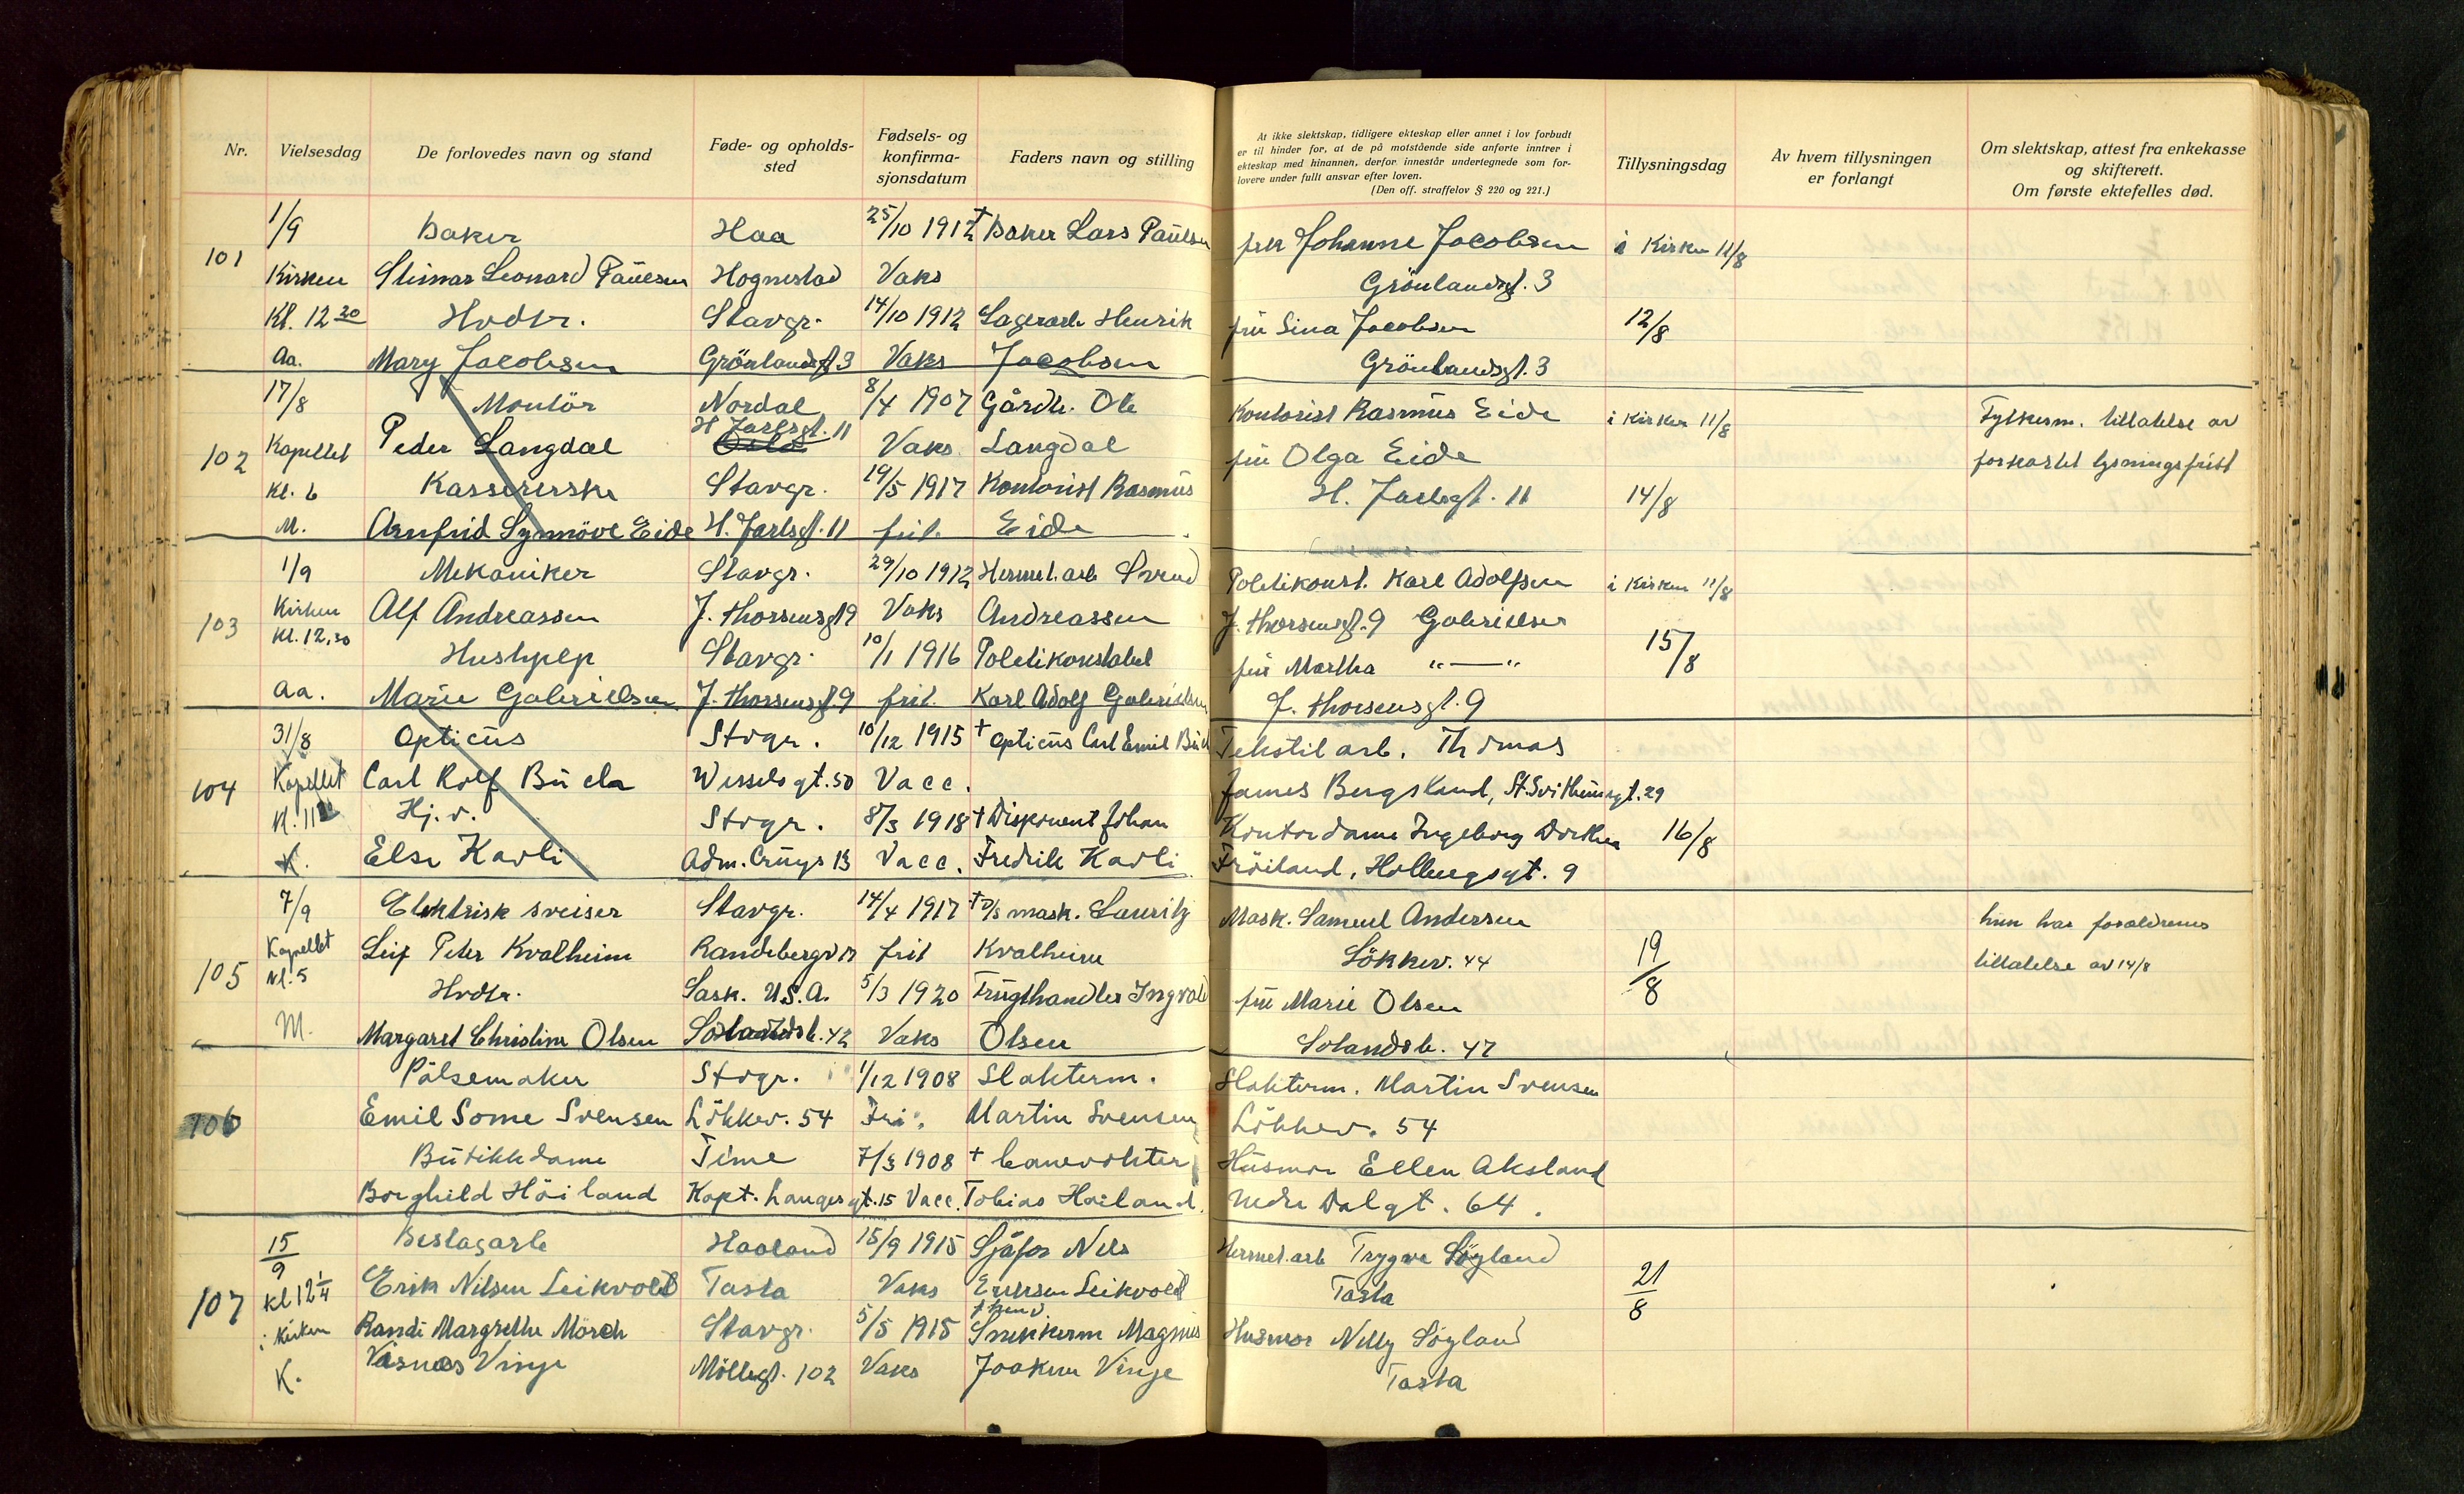 Nr.
Vielsesdag
De forlovedes navn og stand
Føde- og opholds-
sted
Fødsels- og
konfirma-
sjonsdatum
Faders navn og stilling
At ikke slektskap, tidligere ekteskap eller annet i lov forbudt
er til hinder for, at de på motstående side anførte inntrer i
ekteskap med hinannen, derfor innestår undertegnede som for-
lovere under fullt ansvar efter loven.
(Den off. straffelov § 220 og 221.)
Tillysningsdag
Av hvem tillysningen
er forlangt
Om slektskap, attest fra enkekasse
og skifterett.
Om første ektefelles død.
101
1/9 Baker Haa 25/10 1912 † Baker Lars Paulsen Johanne Jacobsen i Kirken 11/8
Kirken Leonard Paulsen Hognestad Vaks Grönlandsgt. 3
Kl. 12 30 Hvdtr. Stavgr. 14/10 1912 Lagerarb. Henrik fru Sina Jacobsen 12/8
Aa. Mary Jacobsen Grönlandsgt 3 Vaks Jacobsen Grönlandsgt. 3
17/8 Montör Nordal 8/4 1907 Gårdbr. Ole Kontorist Rasmus Eide i Kirken 11/8 Fylkesm. tillatelse av
102 Kapellet Peder Langdal H. Jarlsgt. 11 Oslo Vaks Langdal fru Olga Eide forkortet lysningsfrist
Kl. 6 Kassererske Stavgr. 19/5 1917 Kontorist Rasmus H. Jarlsgt. 11 14/8
M. Arnfrid Synnöve Eide H. Jarlsgt. 11 frit. Eide
1/9 Mekaniker Stavgr. 29/10 1912 Hermet. arb Svend Politikonst. Karl Adolfsen i Kirken 11/8
103 Kirken Alf Andreassen J. Thorsensgt 9 Vaks Andreassen J. Thorsensgt. 9 Gabrielsen
Kl. 12.30 Hushjelp Stavgr. 10/1 1916 Politikonstabel fru Martha "—" 15/8
Aa. Marie Gabrielsen J. Thorsensgt. 9 frit. Karl Adolf Gabrielsen J. Thorsensgt. 9
31/8 Opticus Stvgr. 10/12 1915 † Opticus Carl Emil Tekstilarb. Thomas
104 Kapellet Carl Rolf Wesselsgt. 50 Vacc. James Bergsland, St. Svithunsgt. 29
Kl. 11 Hj. v. Stvgr. 8/3 1918 † Disponent Johan Kontordame Ingeborg Dorthea 16/8
K. Else Kavli Adm. Cruys 13 Vacc. Fredrik Kavli Fröiland, Holbergsgt. 9
7/9 Elektrisk sveiser Stavgr. 14/4 1917 † D/S mask. Lauritz Mask. Samuel Andersen hun har foreldrenes
105 Kapellet Leif Peter Kvalheim Randebergv 17 frit Kvalheim Lökkev. 44 19/8 tillatelse av 14/8
Kl. 5 Hvdtr. Sask. U.S.A. 5/3 1920 Frugthandler Ingvald fru Marie Olsen
M. Margaret Christine Olsen Solandsb. 42 Vaks Olsen Solandsb. 42
Pölsemaker Stvgr. 1/12 1908 Slakterm. Slakterm. Martin Svensen
106 Emil Some Svensen Lökkev. 54 Fri. Martin Svensen Lökkev. 54
Butikkdame Time 7/3 1908 † banevokter Husmor Ellen Aksland
Borghild Höiland Kapt. Langes gt. 15 Vacc. Tobias Höiland. Nedre Dalgt. 64.
15/9 Beslagarb Haaland 15/9 1915 Sjåfør Nils Hermet. arb Trygve Söyland
107 kl 12 1/4 Erik Nilsen Leikvold Tasta Vaks Leikvold Tasta 21/8
i Kirken Randi Margrethe Mörch Stavgr. 5/5 1915 Snekkerm Magnus Husmor Nelly Söyland
K. Visnæs Vinje Möllegt. 102 Vaks Joakim Vinje Tasta